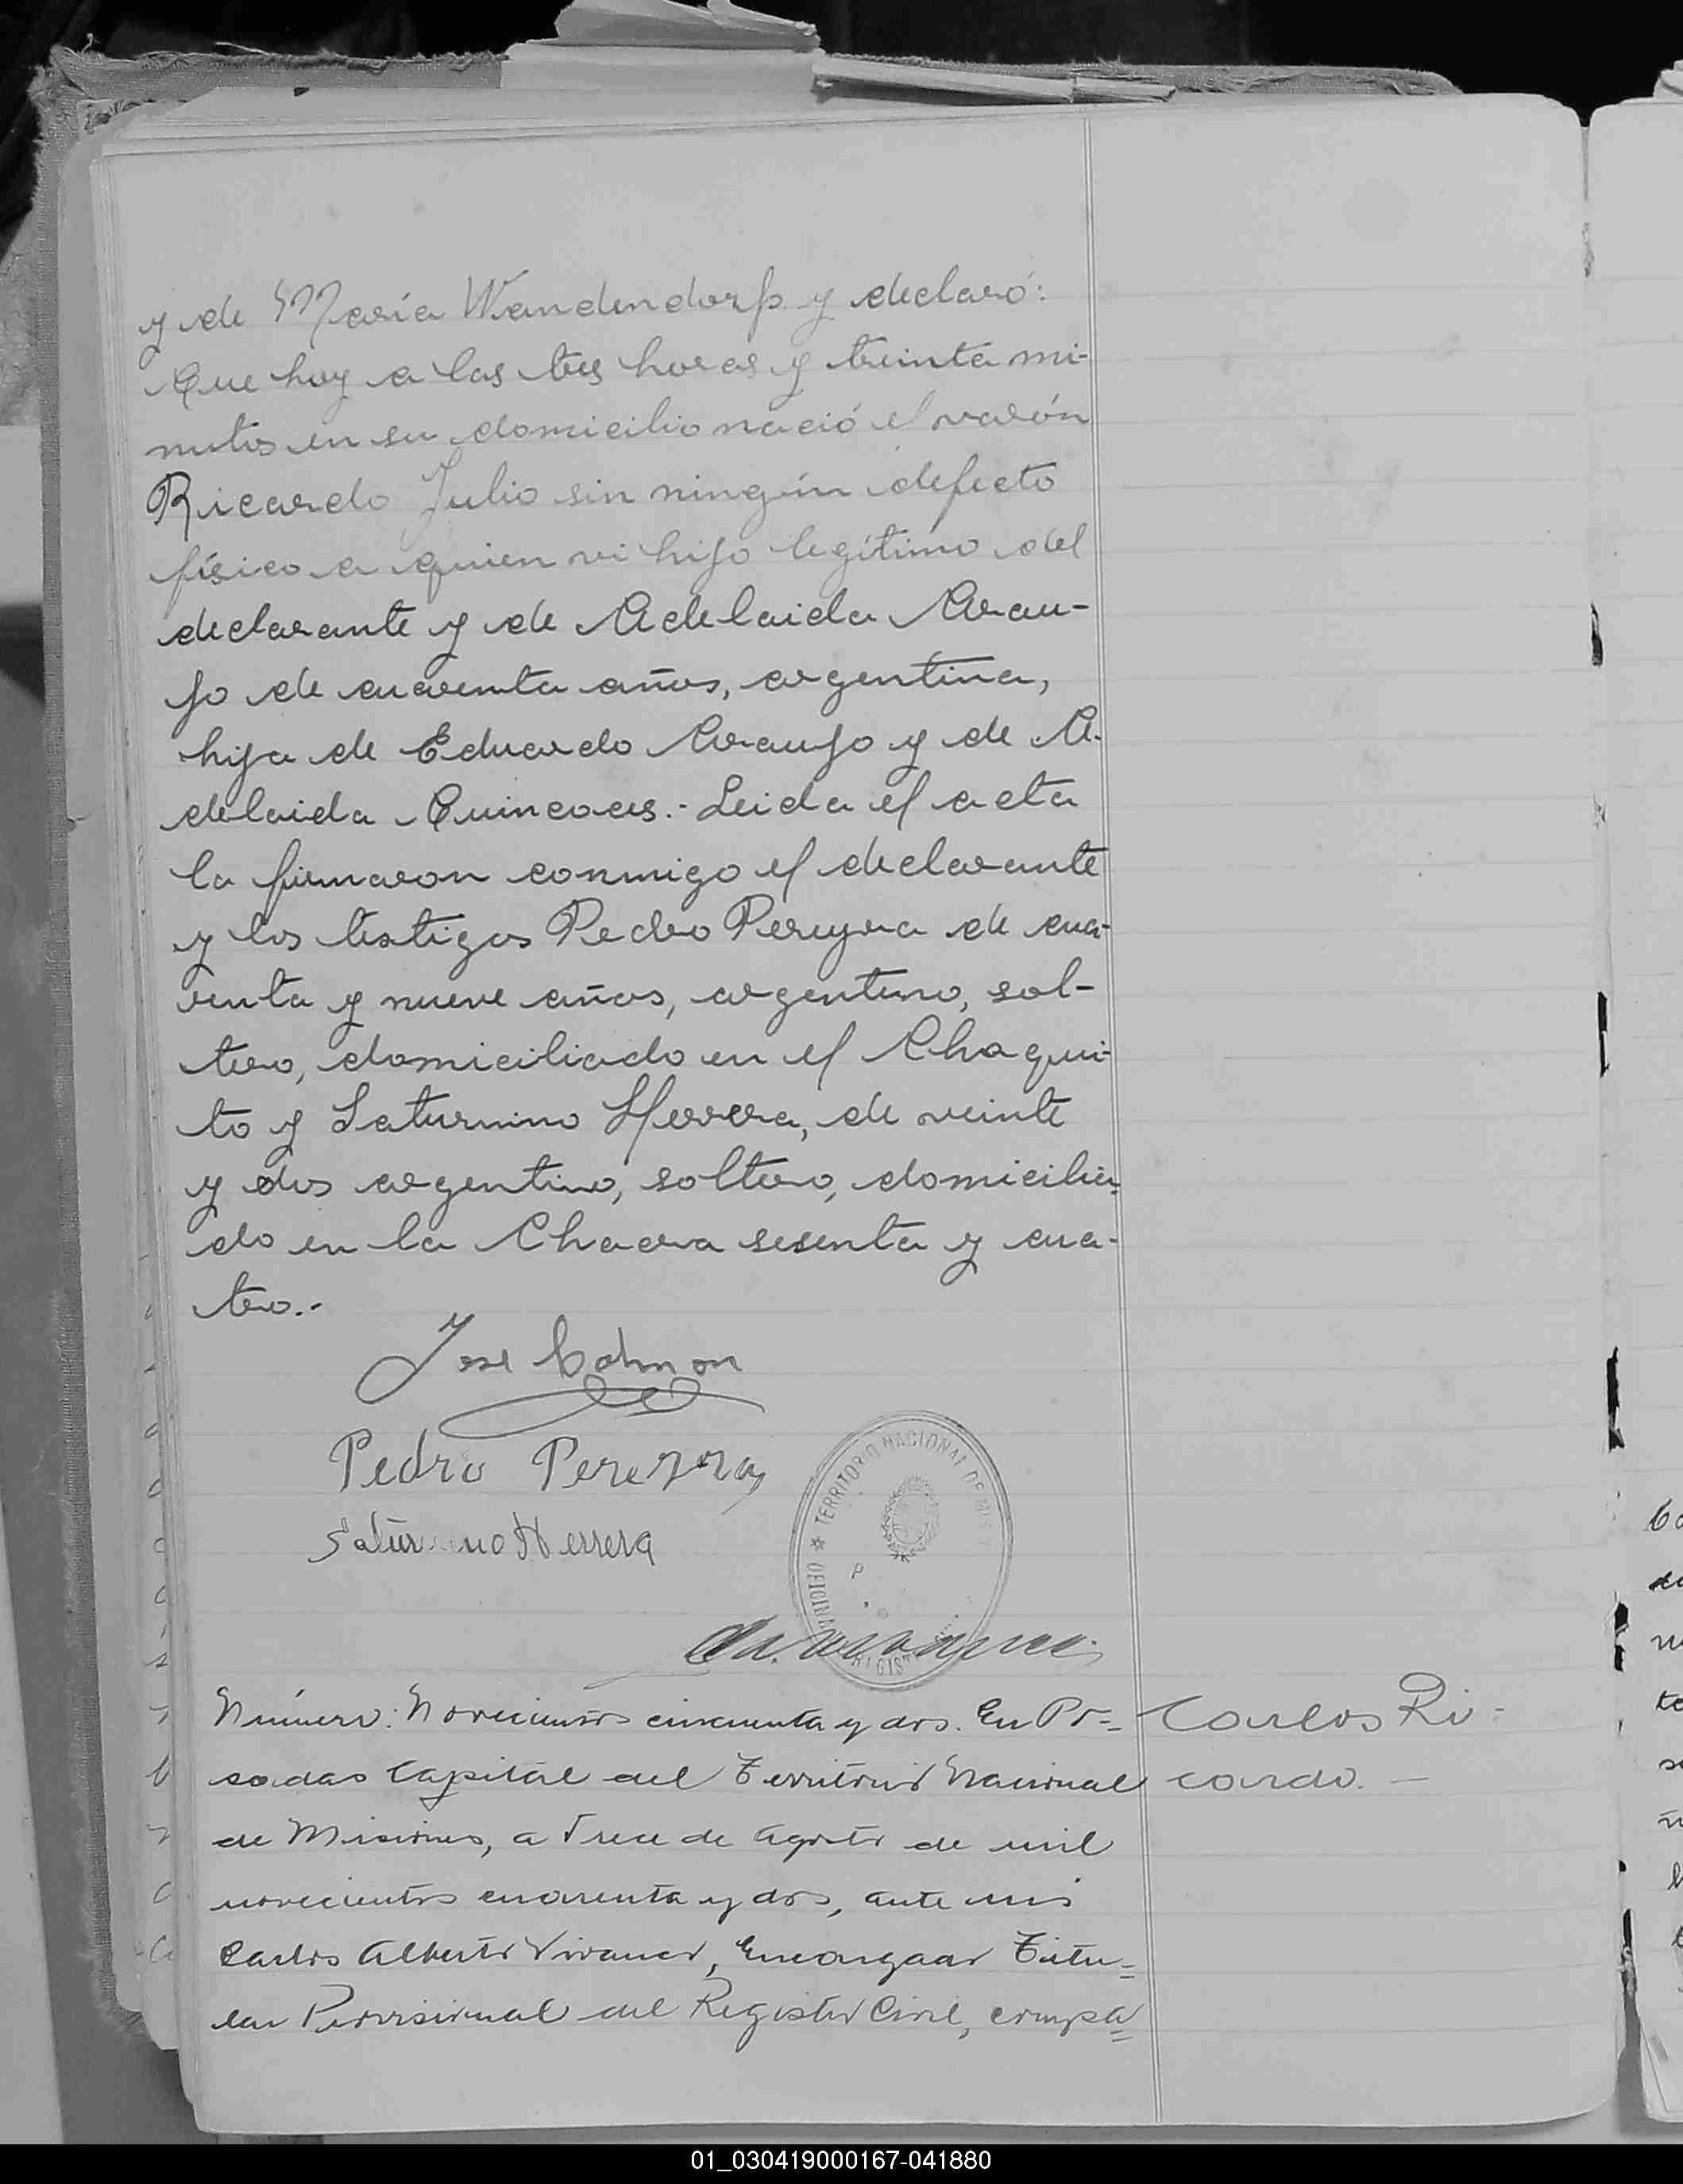 y de María Wandendorp y declaró:
Que hoy a las tres horas y treinta mi-
nutos en su domicilio nació el varón
Ricardo Julio sin ningún defecto
físico a quien vi hijo legítimo del
declarante y de Adelaida Arau-
jo de cuarenta años, argentina,
hija de Eduardo Araujo y de A-
delaida Quincoces.- Leida el acta
la firmaron conmigo el declarante
y los testigos Pedro Pereyra de cua-
renta y nueve años, argentino, sol-
tero, domiciliado en el Chaqui-
to y Saturnino Herrera, de veinte
y dos argentino, soltero, domicilia-
do en la Chacra sesenta y cua-
tro.-
Jose Colman
Pedro Pereyra
Saturnino Herrera
TERRITORIO NACIONAL DE
OFICINA
Número: Novecientos cincuenta y dos. En Po=
sadas Capital del Territorio Nacional
de Misiones, a Trece de Agosto de mil
novecientos cuarenta y dos, ante mi
Carlos Alberto Vivanco, Encargado Titu=
lar Provisional del Registro Civil, compa=
Carlos Ri=
cardo.—
01_030419000167-041880